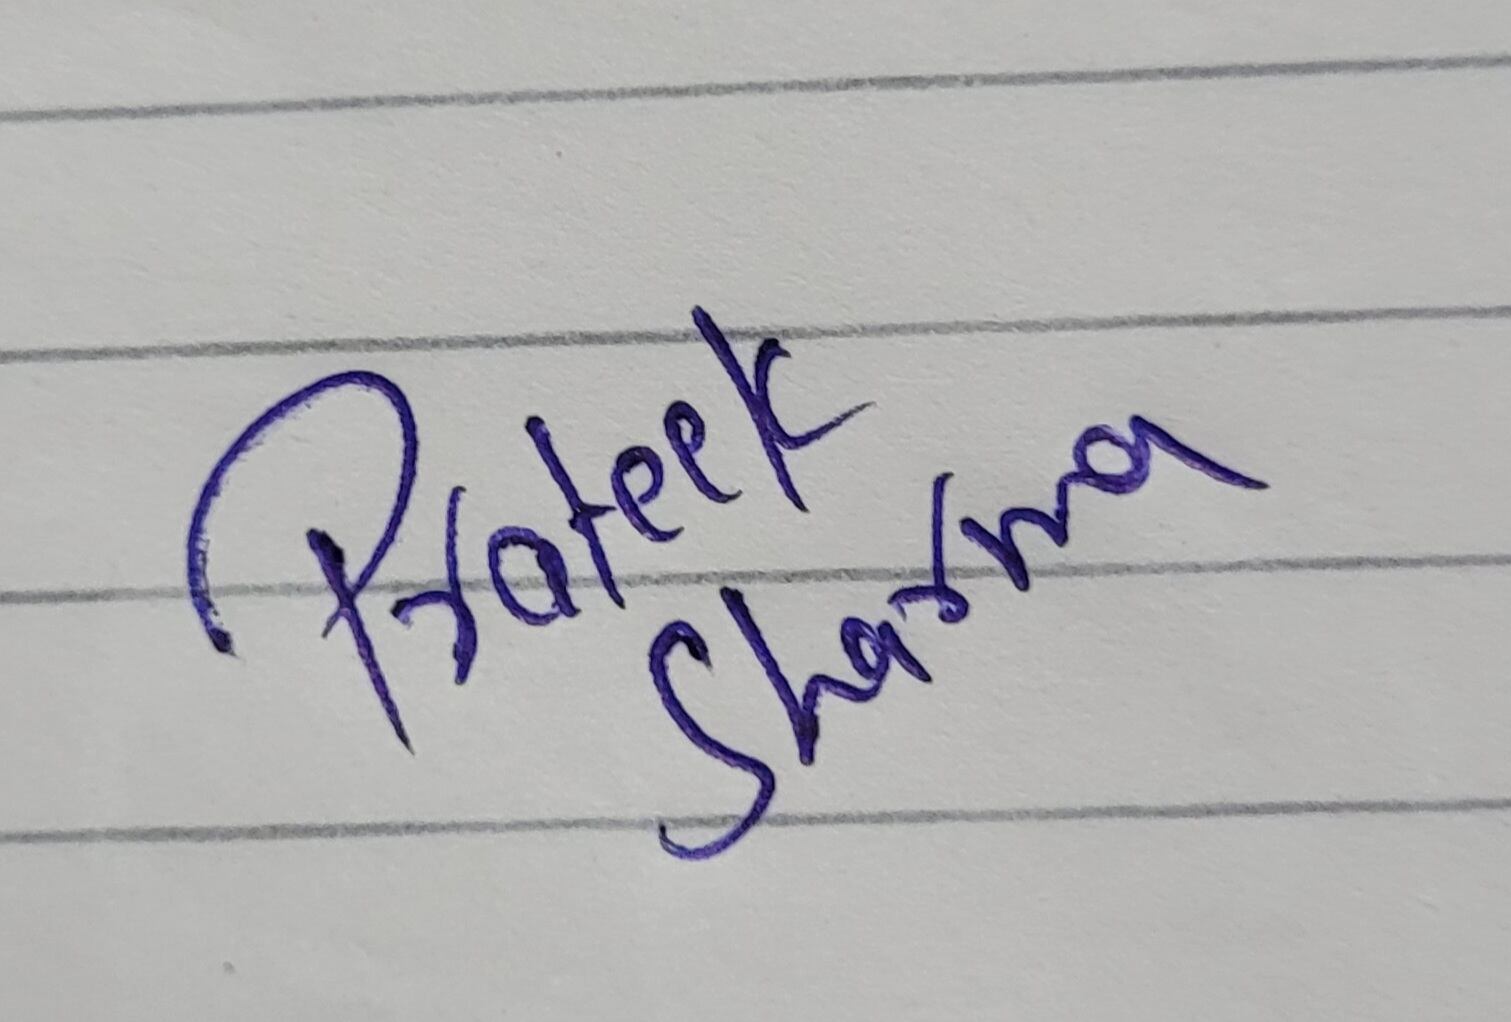 Prateek
Sharma